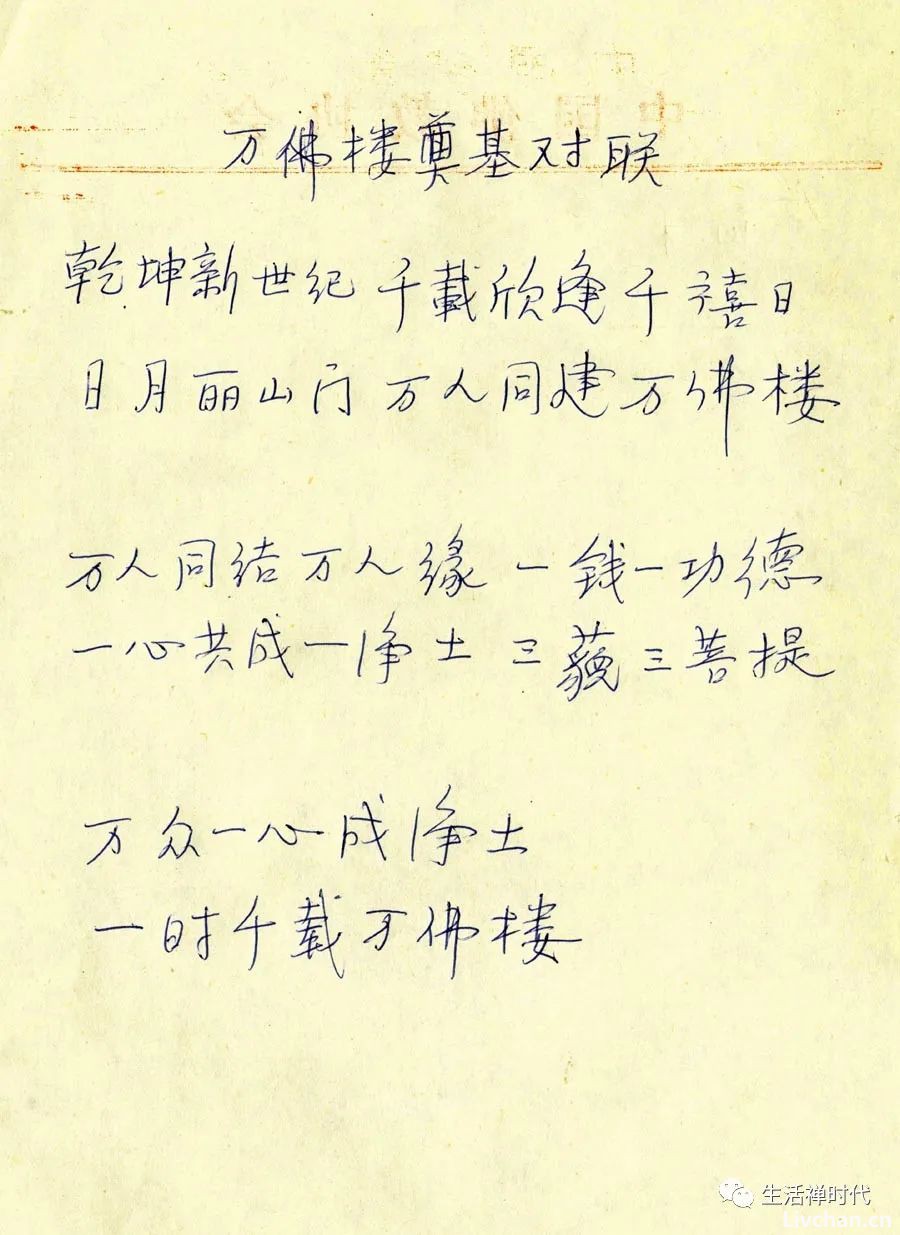 万佛楼奠基对联
乾坤新世纪 千載欣逢千禧日
日月丽山门 万人同建万佛楼
万人同结万人缘 一钱一功德
一心共成一净土 三藐三菩提
万众一心成净土
一时千載万佛楼
生活禅时代
Livchan.cn